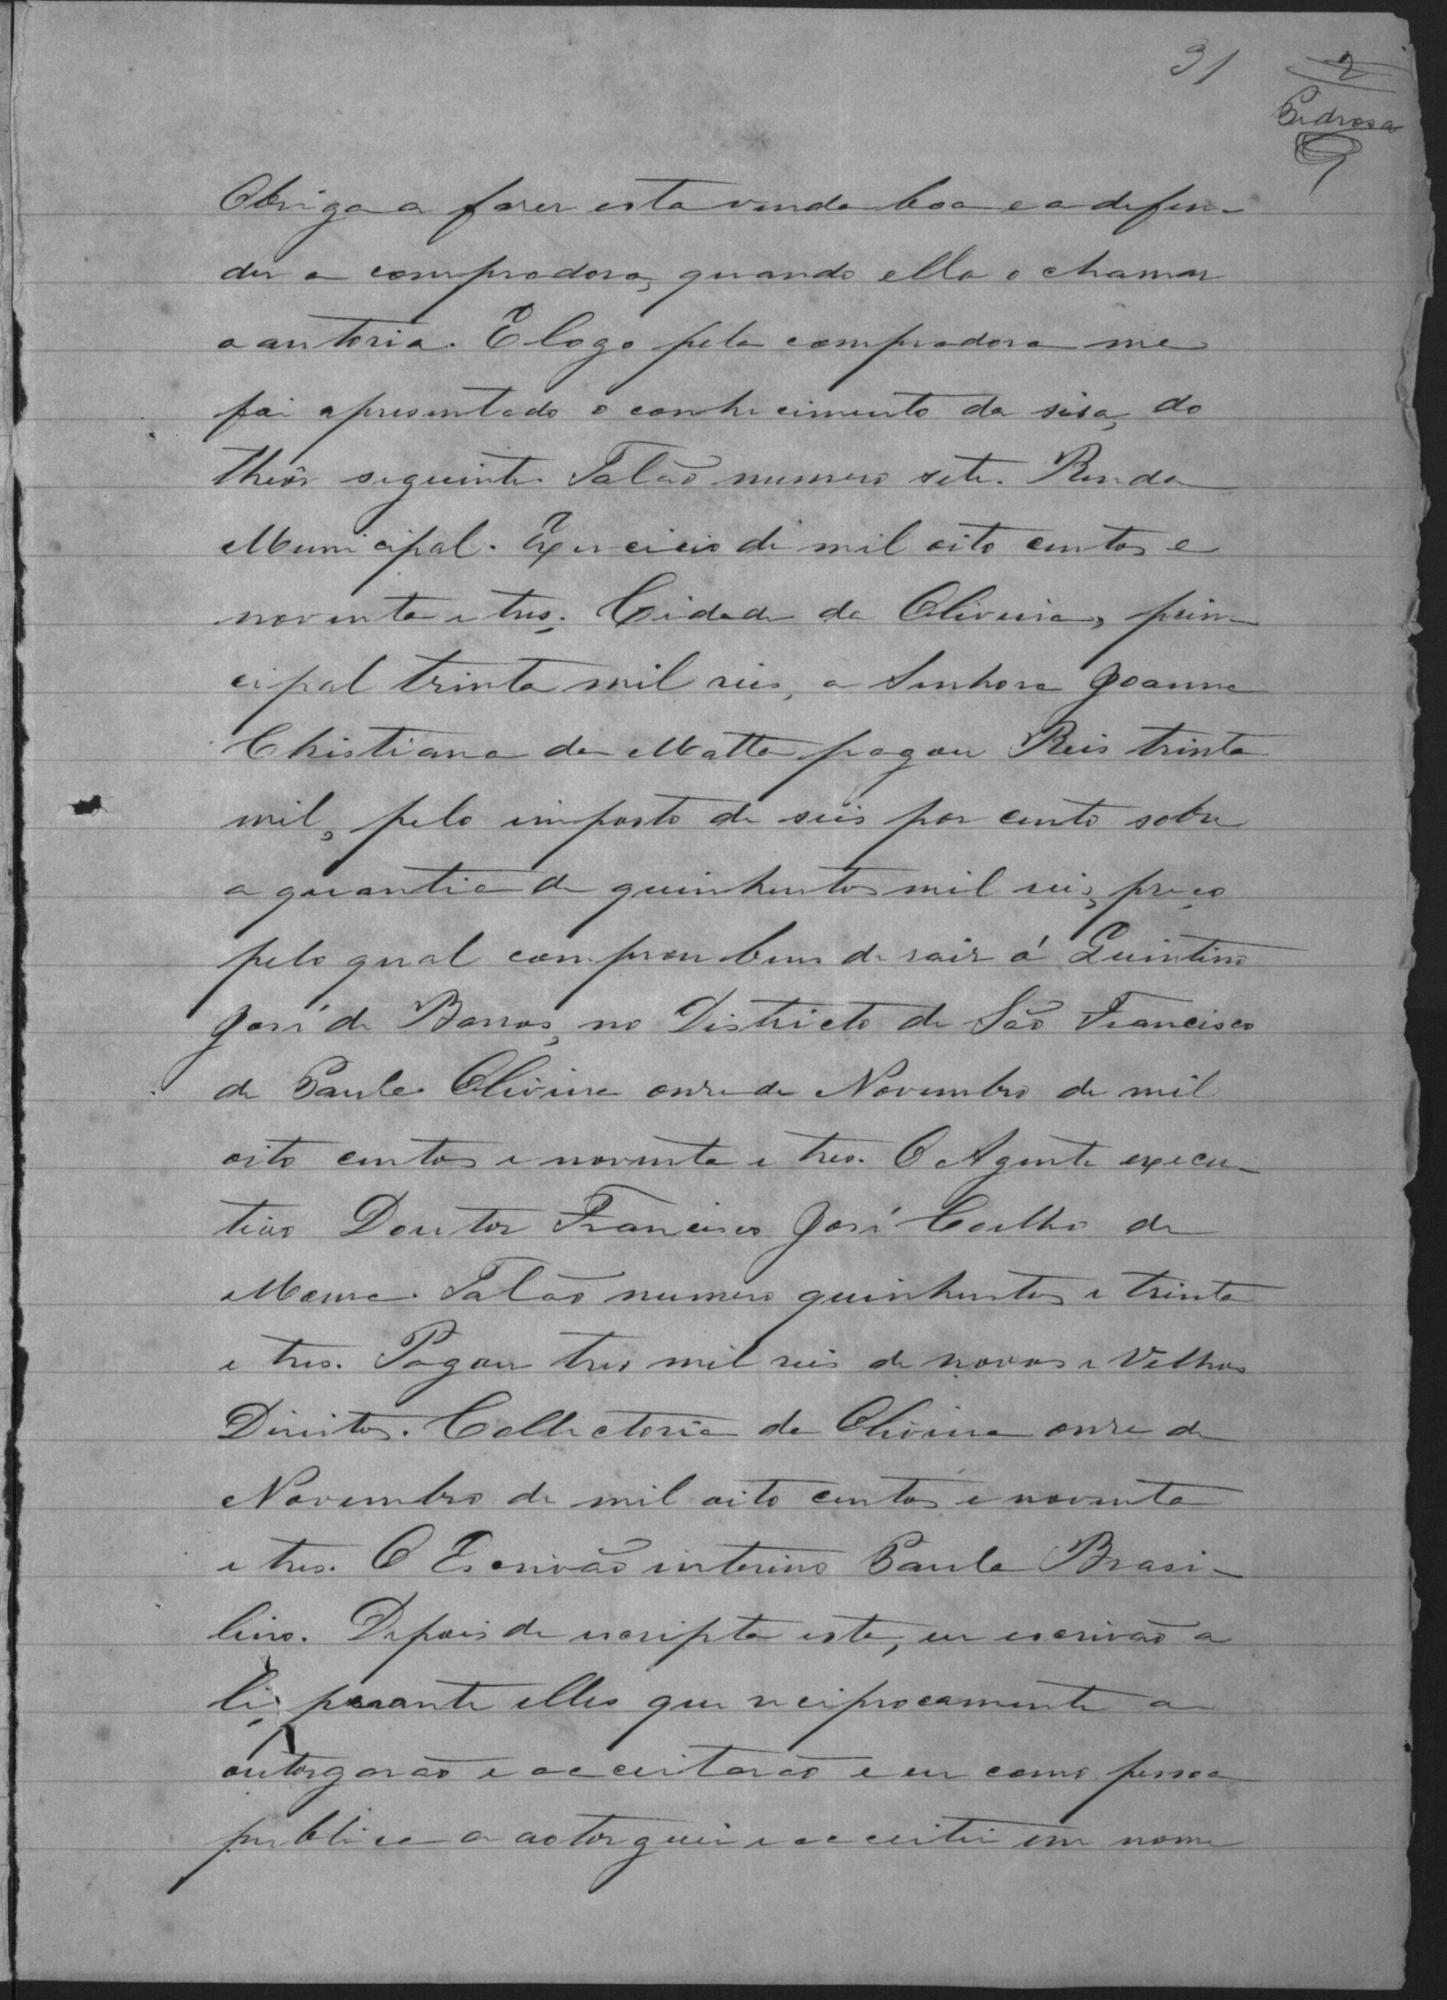 31
2
Pedrosa
Obriga a fazer esta venda boa e a defen-
der a compradora, quando ella o chamar
a autoria. E logo pela compradora me
foi apresentado o conhecimento da sisa, do
theôr seguinte. Talão numero sete. Renda
Municipal. Exercicio de mil oito centos e
noventa e tres. Cidade da Oliveira, prin-
cipal trinta mil reis, a Senhora Joanna
Christiana da Matta pagou Reis trinta
mil, pelo imposto de seis por cento sobre
a quantia de quinhentos mil reis, preço
pelo qual comprou bens de raiz á Quintino
José de Barros, no Districto de São Francisco
de Paula. Oliveira onze de Novembro de mil
oito centos e noventa e tres. O Agente execu-
tivo Doutor Francisco José Coelho de
Moura. Talão numero quinhentos e trinta
e tres. Pagou tres mil reis de novos e Velhos
Direitos. Collectoria da Oliveira onze de
Novembro de mil oito centos e noventa
e tres. O Escrivão interino Paula Brasi-
leiro. Depois de escripta esta, eu escrivão a
li, perante elles que reciprocamente a
outorgarão e acceitarão e eu como pessoa
publica a aotorguei e acceitei em nome